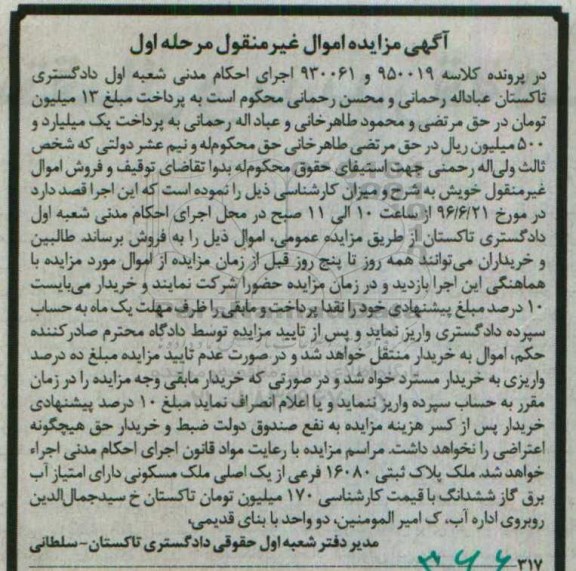 آگهی مزایده اموال غیرمنقول مرحله اول
در پرونده کلاسه ۹۵۰۰۱۹ و ۹۳۰۰۶۱ اجرای احکام مدنی شعبه اول دادگستری
تاکستان عباداله رحمانی و محسن رحمانی محکوم است به پرداخت مبلغ ۱۳ میلیون
تومان در حق مرتضی و محمود طاهرخانی و عباداله رحمانی به پرداخت یک میلیارد و
۵۰۰ میلیون ریال در حق مرتضی طاهرخانی حق محکوم‌له و نیم عشر دولتی که شخص
ثالث ولی‌اله رحمنی جهت استیفای حقوق محکوم‌له بدوا تقاضای توقیف و فروش اموال
غیرمنقول خویش به شرح و میزان کارشناسی ذیل را نموده است که این اجرا قصد دارد
در مورخ ۹۶/۶/۲۱ از ساعت ۱۰ الی ۱۱ صبح در محل اجرای احکام مدنی شعبه اول
دادگستری تاکستان از طریق مزایده عمومی، اموال ذیل را به فروش برساند. طالبین
و خریداران می‌توانند همه روز تا پنج روز قبل از زمان مزایده از اموال مورد مزایده با
هماهنگی این اجرا بازدید و در زمان مزایده حضورا شرکت نمایند و خریدار می‌بایست
۱۰ درصد مبلغ پیشنهادی خود را نقدا پرداخت و مابقی را ظرف مهلت یک ماه به حساب
سپرده دادگستری واریز نماید و پس از تایید مزایده توسط دادگاه محترم صادرکننده
حکم، اموال به خریدار منتقل خواهد شد و در صورت عدم تایید مزایده مبلغ ده درصد
واریزی به خریدار مسترد خواه شد و در صورتی که خریدار مابقی وجه مزایده را در زمان
مقرر به حساب سپرده واریز ننماید و یا اعلام انصراف نماید مبلغ ۱۰ درصد پیشنهادی
خریدار پس از کسر هزینه مزایده به نفع صندوق دولت ضبط و خریدار حق هیچگونه
اعتراضی را نخواهد داشت. مراسم مزایده با رعایت مواد قانون اجرای احکام مدنی اجراء
خواهد شد. ملک پلاک ثبتی ۱۶۰۸۰ فرعی از یک اصلی ملک مسکونی دارای امتیاز آب
برق گاز ششدانگ با قیمت کارشناسی ۱۷۰ میلیون تومان تاکستان خ سیدجمال‌الدین
روبروی اداره آب، ک امیر المومنین، دو واحد با بنای قدیمی،
مدیر دفتر شعبه اول حقوقی دادگستری تاکستان-سلطانی
۳۱۷